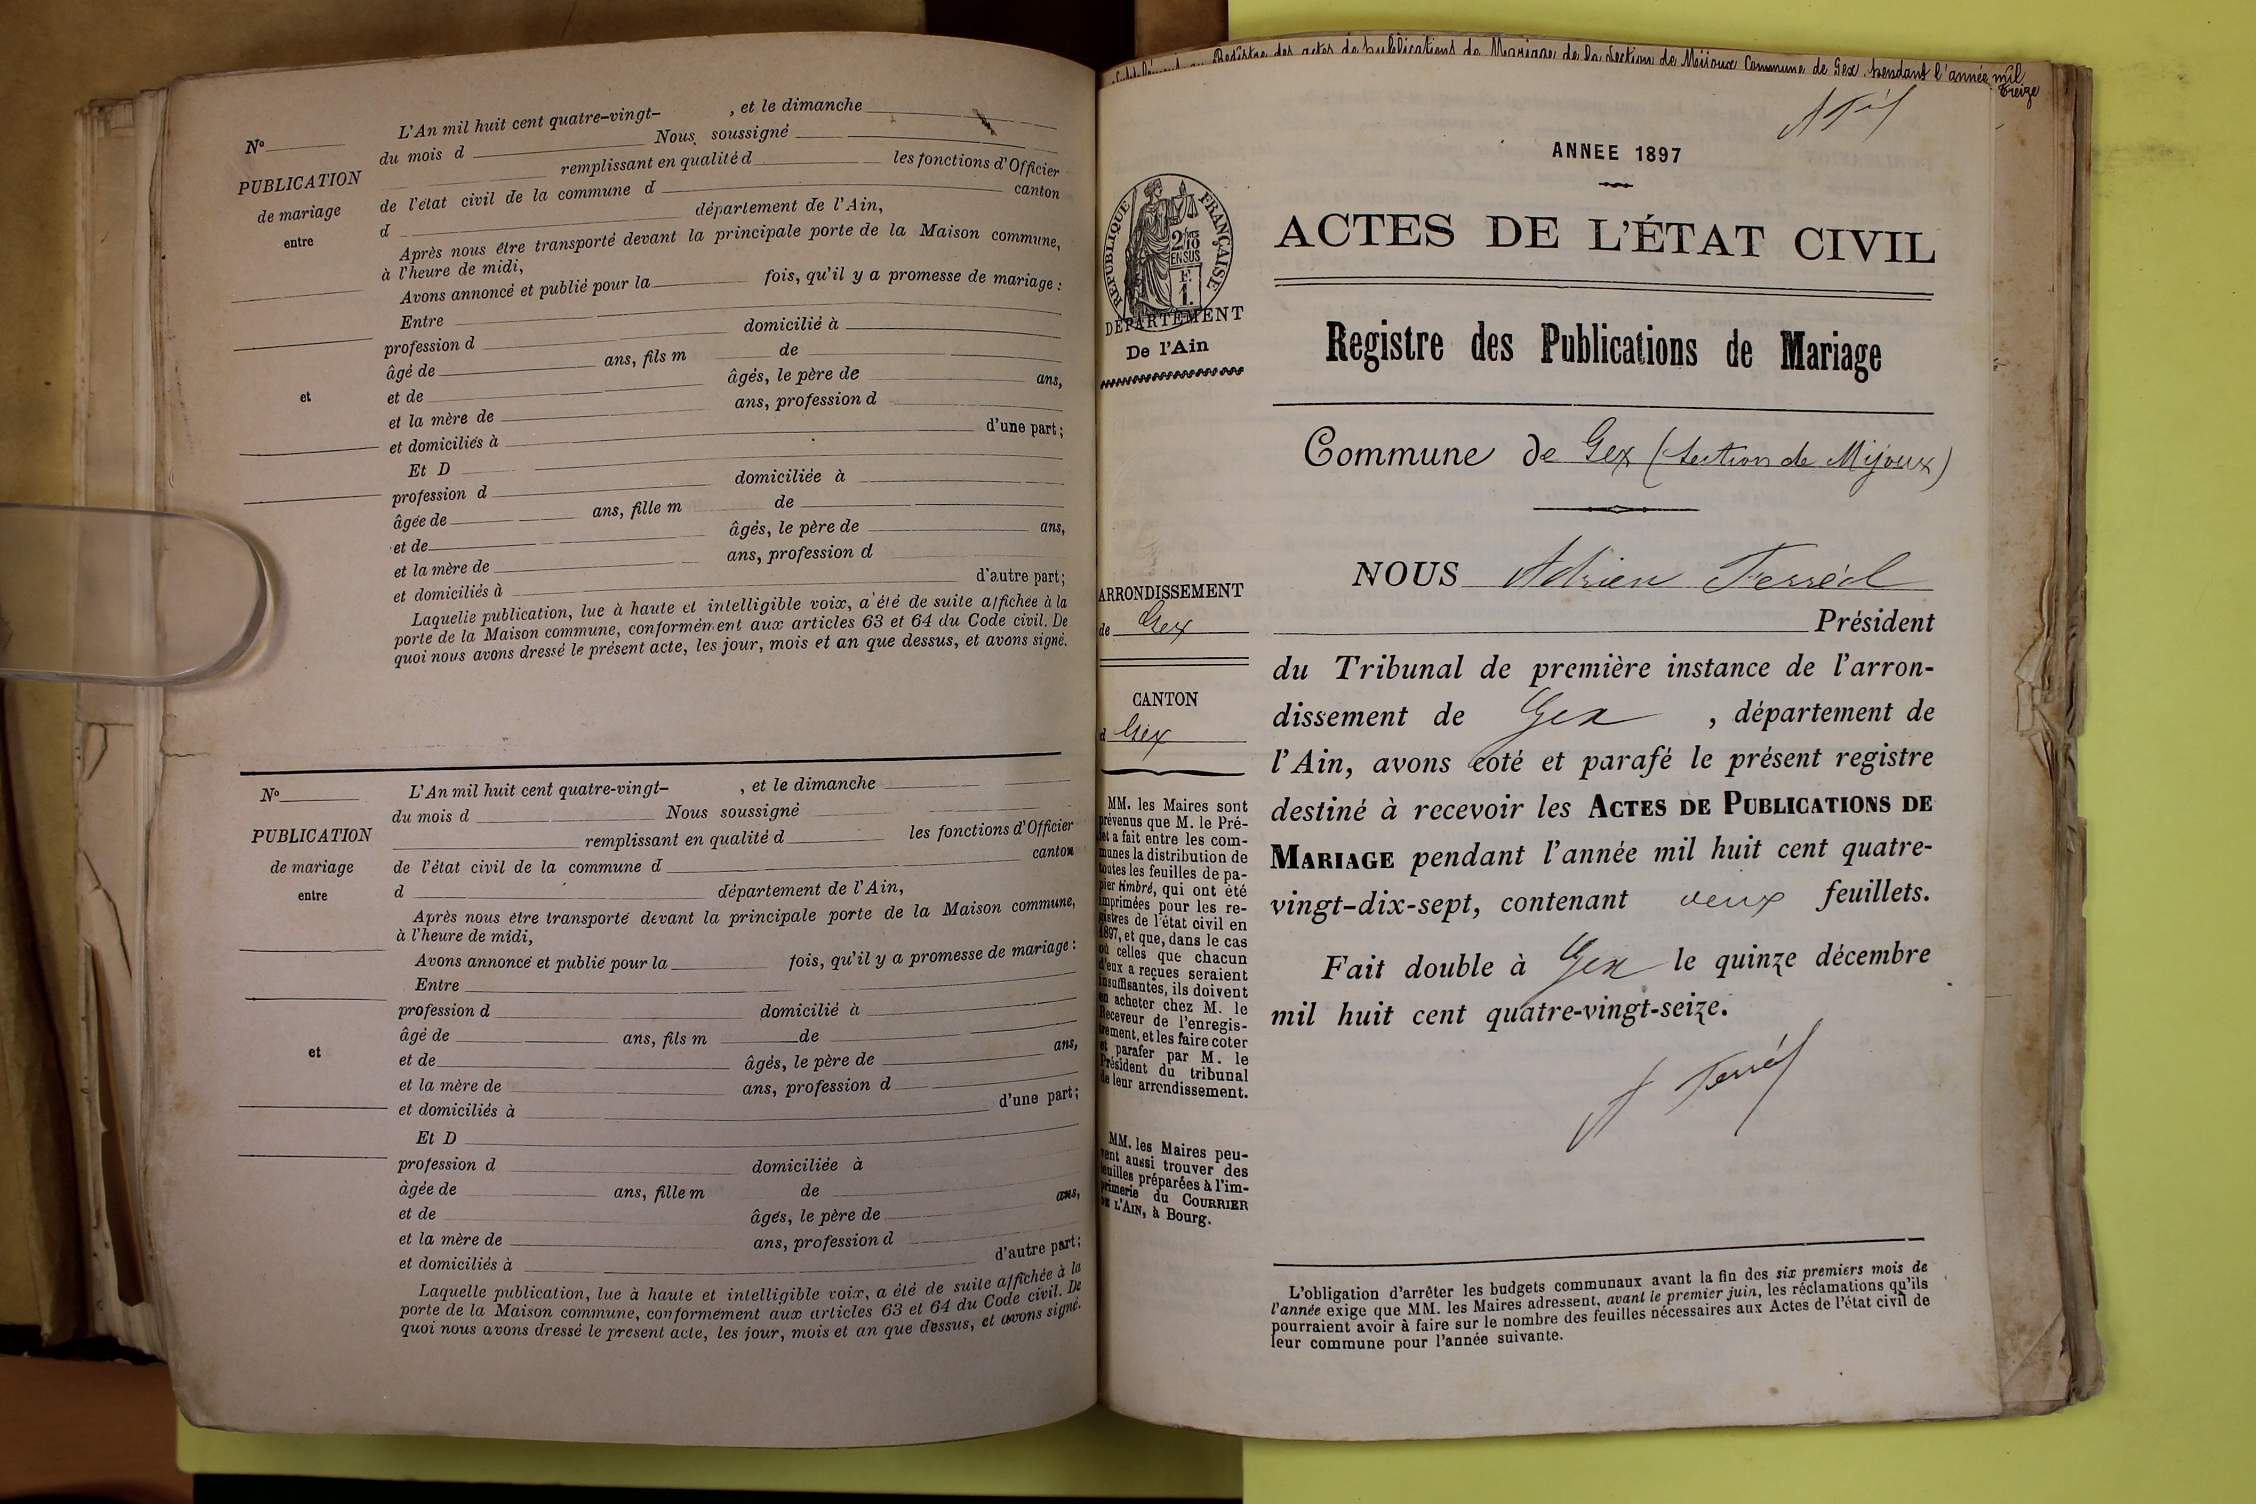 Nº
PUBLICATION
de mariage
entre
et
L'An mil huit cent quatre-vingt- , et le dimanche
du mois d Nous soussigné
remplissant en qualité d les fonctions d'Officier
de l'état civil de la commune d canton
d département de l'Ain,
Après nous être transporté devant la principale porte de la Maison commune,
à l'heure de midi,
Avons annoncé et publié pour la fois, qu'il y a promesse de mariage :
Entre
profession d domicilié à
âgé de ans, fils m de
et de âgés, le père de ans,
et la mère de ans, profession d
et domiciliés à d'une part ;
Et D
profession d domiciliée à
âgée de ans, fille m de
et de âgés, le père de ans,
et la mère de ans, profession d
et domiciliés à d'autre part ;
Laquelle publication, lue à haute et intelligible voix, a été de suite affichée à la
porte de la Maison commune, conformément aux articles 63 et 64 du Code civil. De
quoi nous avons dressé le présent acte, les jour, mois et an que dessus, et avons signé.
Nº
PUBLICATION
de mariage
entre
et
L'An mil huit cent quatre-vingt- , et le dimanche
du mois d Nous soussigné
remplissant en qualité d les fonctions d'Officier
de l'état civil de la commune d canton
d département de l'Ain,
Après nous être transporté devant la principale porte de la Maison commune,
à l'heure de midi,
Avons annoncé et publié pour la fois, qu'il y a promesse de mariage :
Entre
profession d domicilié à
âgé de ans, fils m de
et de âgés, le père de ans,
et la mère de ans, profession d
et domiciliés à d'une part ;
Et D
profession d domiciliée à
âgée de ans, fille m de
et de âgés, le père de ans,
et la mère de ans, profession d
et domiciliés à d'autre part ;
Laquelle publication, lue à haute et intelligible voix, a été de suite affichée à la
porte de la Maison commune, conformément aux articles 63 et 64 du Code civil. De
quoi nous avons dressé le present acte, les jour, mois et an que dessus, et avons signé.
Registre des actes de publications de Mariage de la Section de Mijoux Commune de Gex, pendant l'année mil
treize
ANNEE 1897
RÉPUBLIQUE FRANÇAISE
DÉPARTEMENT
De l'Ain
ARRONDISSEMENT
de Gex
CANTON
d Gex
MM. les Maires sont
prévenus que M. le Pré-
fet a fait entre les com-
munes la distribution de
toutes les feuilles de pa-
pier timbré, qui ont été
imprimées pour les re-
gistres de l'état civil en
1897, et que, dans le cas
où celles que chacun
d'eux a reçues seraient
insuffisantes, ils doivent
en acheter chez M. le
Receveur de l'enregis-
trement, et les faire coter
et parafer par M. le
Président du tribunal
de leur arrondissement.
MM. les Maires peu-
vent aussi trouver des
feuilles préparées à l'im-
primerie du COURRIER
DE L'AIN, à Bourg.
ACTES DE L'ÉTAT CIVIL
Registre des Publications de Mariage
Commune de Gex (section de Mijoux)
NOUS Adrien Ferréol
Président
du Tribunal de première instance de l'arron-
dissement de Gex , département de
l'Ain, avons coté et parafé le présent registre
destiné à recevoir les ACTES DE PUBLICATIONS DE
MARIAGE pendant l'année mil huit cent quatre-
vingt-dix-sept, contenant deux feuillets.
Fait double à Gex le quinze décembre
mil huit cent quatre-vingt-seize.
L'obligation d'arrêter les budgets communaux avant la fin des six premiers mois de
l'année exige que MM. les Maires adressent, avant le premier juin, les réclamations qu'ils
pourraient avoir à faire sur le nombre des feuilles nécessaires aux Actes de l'état civil de
leur commune pour l'année suivante.